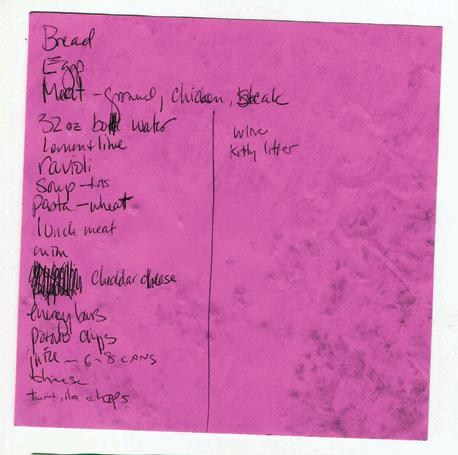 Bread
Eggs
Meat - ground, chicken, steak
32 oz bott water
Lemon + lime
ravioli
Soup -
Pasta - wheat
lunch meat
cheddar cheese
energy bars
potato chips
juice - 6-8 cans
cheese
tortilla chips
wine
Kitty litter